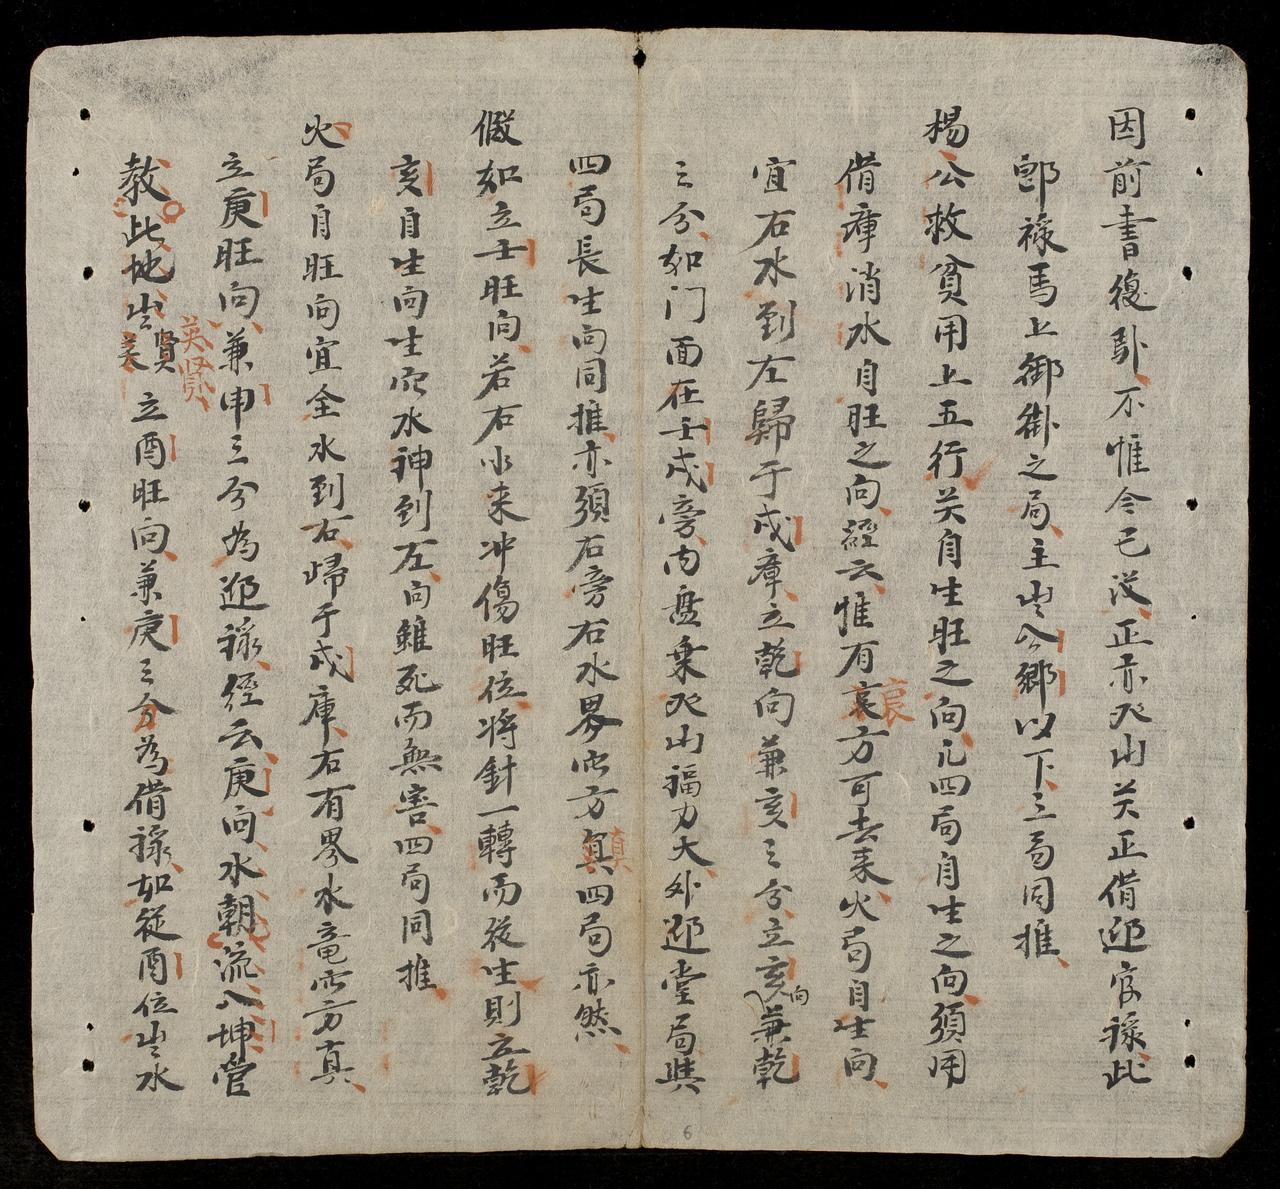 因前書復卦不惟今已没正亦死山关正借迎官祿此
郎祿馬上御街之局主出公鄉以下三局同推
楊公救貧用上五行关自生旺之向凢四局自生之向須用
借庫消水自旺之向經云惟有衰方可去来火局自生向
宜右水到左歸于戌庫立乾向兼亥三分立亥向兼乾
三分如门面在壬戌旁内盘乗死山福力大外迎堂局與
四局長生向同推亦須右旁右水界啣方真四局亦然
假如立壬旺向若右水来冲傷旺位将針一轉而発生則立乾
亥自生向生啣水神到左向雖死而無害四局同推
火局自旺向宜全水到右帰于戌庫右有界水竜啣方真
立庚旺向兼申三分為迎祿經云庚向水朝流入坤管
教此地出賢英立酉旺向兼庚三分為借祿如從酉位出水
英贤
衰
真
6